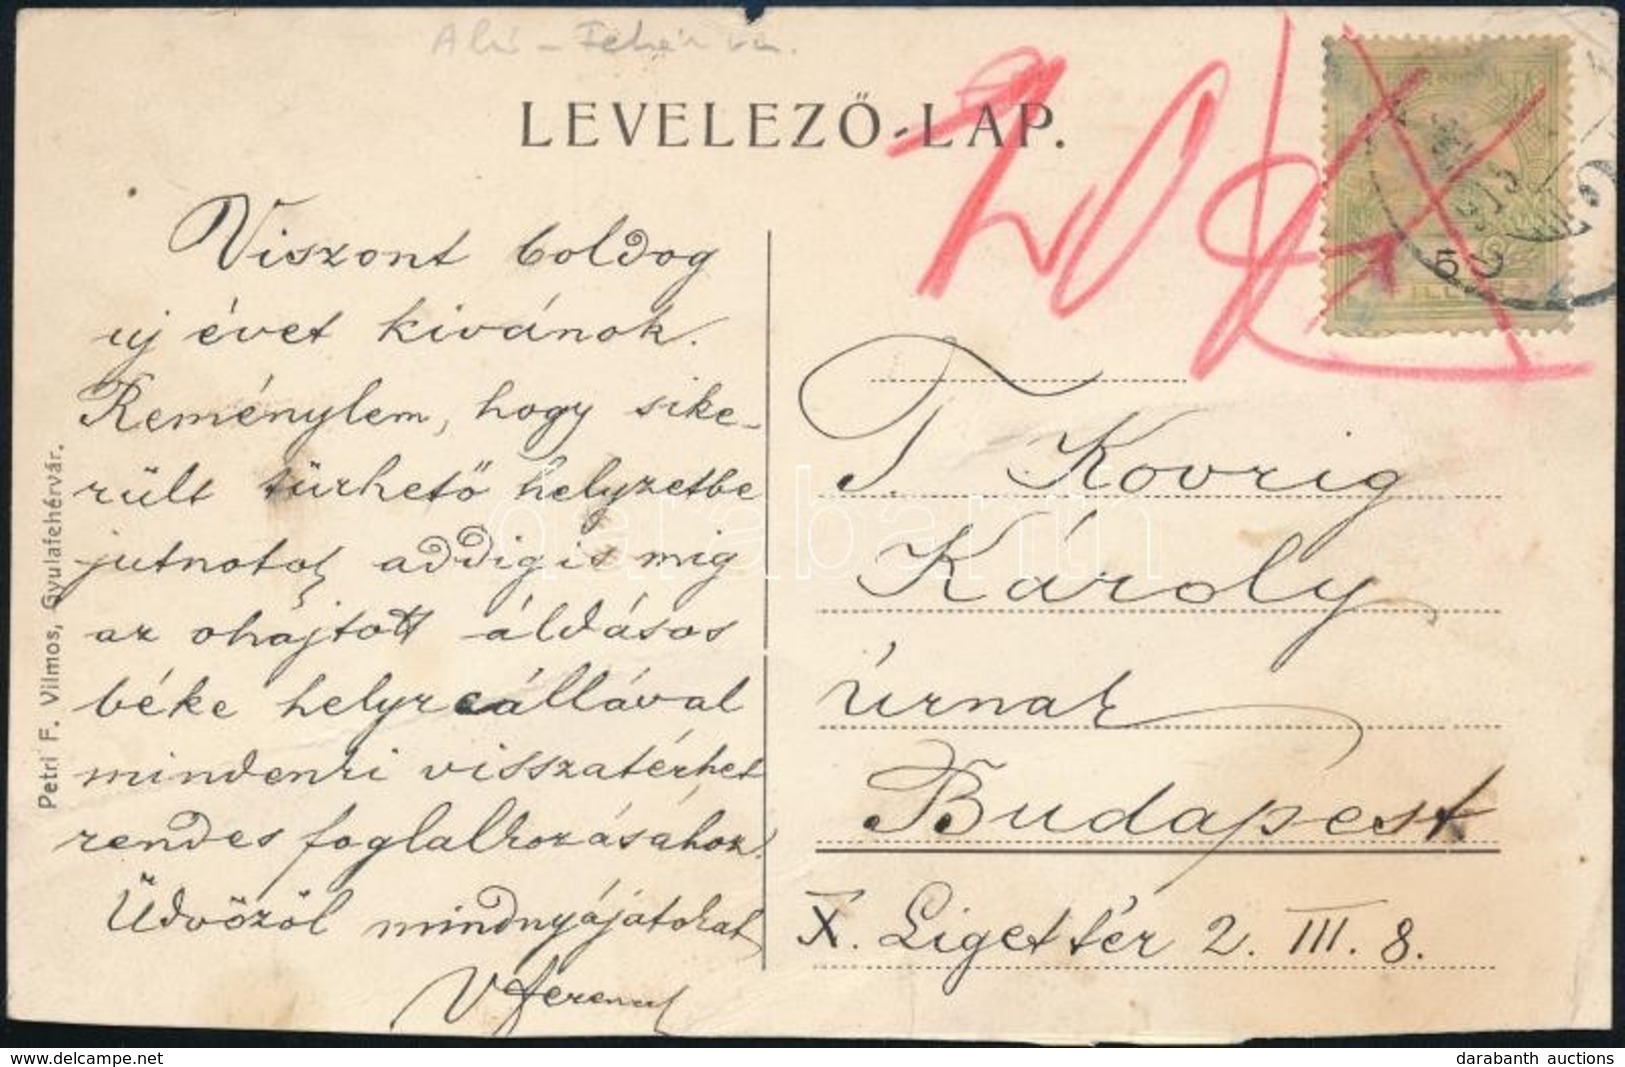 LEVELEZŐ-LAP.
Viszont boldog
uj évet kivánok.
Reménylem, hogy sike-
rült türhető helyzetbe
jutnotok addig is mig
az ohajtott áldásos
béke helyreállával
mindenki visszatérhet
rendes foglalkozásához.
Üdvözöl mindnyájatokat
Petri F. Vilmos, Gyulafehérvár.
T. Kovrig
Károly
Úrnak
Budapest
X. Liget tér 2. III. 8.
darabanth
delcampe.net
darabanth auctions